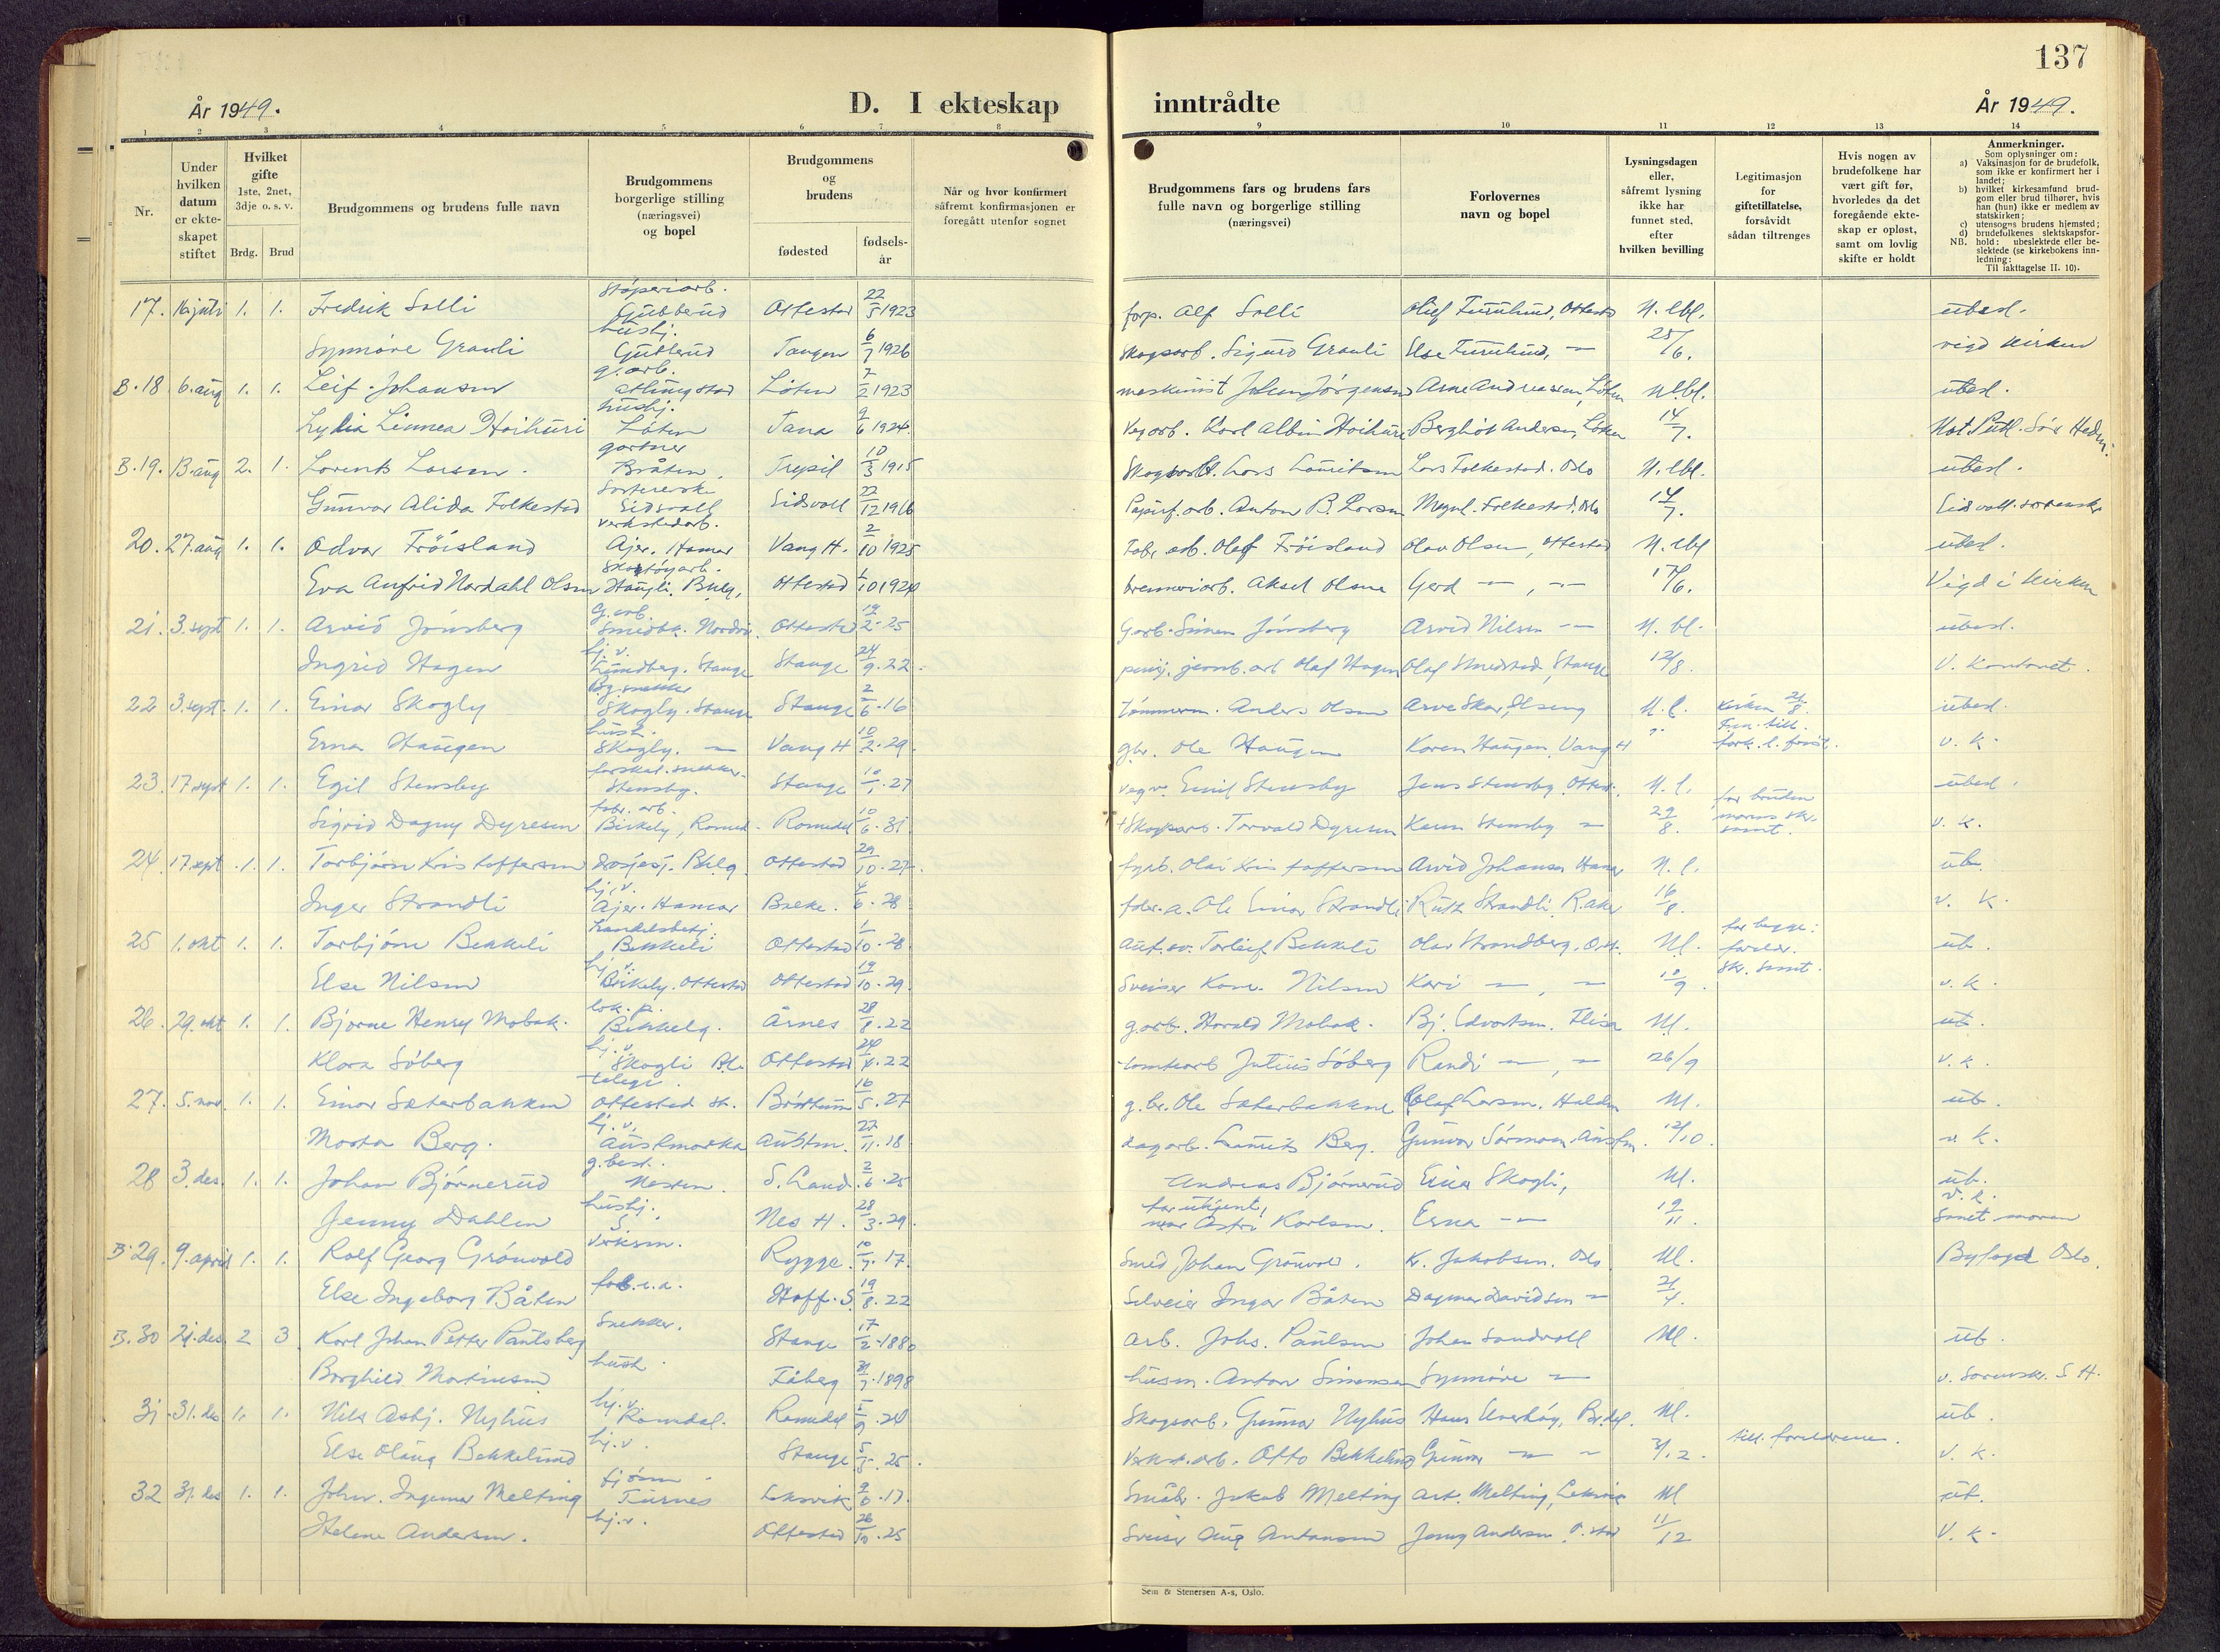 137
År 1949. D. I ekteskap inntrådte År 1949.
1 2 3 4 5 6 7 8 9 10 11 12 13 14
Nr.
Under hvilken datum er ekte-skapet stiftet
Hvilket gifte 1ste, 2net, 3dje o. s. v.
Brdg. Brud
Brudgommens og brudens fulle navn
Brudgommens borgerlige stilling (næringsvei) og bopel
Brudgommens og brudens
fødested
fødsels-år
Når og hvor konfirmert såfremt konfirmasjonen er foregått utenfor sognet
Brudgommens fars og brudens fars fulle navn og borgerlige stilling (næringsvei)
Forlovernes navn og bopel
Lysningsdagen eller, såfremt lysning ikke har funnet sted, efter hvilken bevilling
Legitimasjon for giftetillatelse, forsåvidt sådan tiltrenges
Hvis nogen av brudefolkene har vært gift før, hvorledes da det foregående ekte-skap er opløst, samt om lovlig skifte er holdt
Anmerkninger.
Som oplysninger om:
a) Vaksinasjon for de brudefolk, som ikke er konfirmert her i landet;
b) hvilket kirkesamfund brud-gom eller brud tilhører, hvis han (hun) ikke er medlem av statskirken;
c) utensogns brudens hjemsted;
d) brudefolkenes slektskapsfor-hold: ubeslektede eller be-slektede (se kirkebokens inn-ledning:
NB. Til iakttagelse II. 10).
Støperiarb.
17. 16 juli 1. 1. Fredrik Solli Gubberud Ottestad 22/5 1923 forp. Alf Solli Oluf Furulund, Ottestad N. lbl. ubesl.
hushj.
Synnøve Grauli Gubberud Tangen 6/7 1926 Skogsarb. Sigurd Grauli Else Furulund, — 25/6. vigd kirken
g. arb.
B. 18 6. aug 1. 1. Leif Johansen Løten 7/2 1923 maskinist Johan Jørgensen Arne Andreassen, Løten N. lbl. ubesl.
hushj.
Lydia Linnea Hoikuri Løten Tana 9/6 1924. Vegarb. Karl Albin Hoikuri Bergliot Andersen, Løten 14/7.
gartner
B. 19. 13. aug 2. 1. Lorents Larsen. Bråten, Trysil 10/3 1915 Skogsarb. Lars Lauritsen Lars Folkestad. Oslo N. lbl. ubesl.
Gunvor Alida Folkestad Eidsvoll Eidsvoll 22/12 1916 Papirf. arb. Anton B. Larsen Magnh. Folkestad, Oslo 14/7. Eidsvoll
verkstedarb.
20. 27. aug 1. 1. Odvar Frøisland Ajer. Hamar Vang H. 2/10 1925 Fabr. arb. Olaf Frøisland Olav Olsen, Ottestad N. lbl ubesl.
Skotøyarb.
Eva Anfrid Nordahl Olsen Haugli. Bklg. Ottestad 1/10 1924 brenneriarb. Aksel Olsen Gerd — , — 17/6. Vigd i kirken
G. arb.
21. 3. sept 1. 1. Arvid Jønsberg Smedbk. Nordvi. Ottestad 19/2. 25 G arb. Simen Jønsberg Arvid Nilsen — N. bl. ubesl.
hj. v.
Ingrid Hagen Lundberg. Stange Stange 24/9. 22. pensj. jernb. arb Olaf Hagen Olaf Smedstad, Stange 12/8. V. Kontoret.
Byg.snekker
22 3. sept. 1. 1. Einar Skogly Skogly. Stange Stange 2/6. 16 Tømmerm. Anders Olsen Arve Skar, Elseng N. l. Kirken 21/8. ubesl.
hush.
Erna Haugen Skogly. — Vang H 10/2. 29. gbr. Ole Haugen Karen Haugen, Vang H v. k.
23. 17 sept 1. 1. Egil Stensby Stensby. Stange 10/1. 27 Vegv. Emil Stensby Jens Stensby. Ottest. N. l. for bruden ubesl.
fabr. arb.
Sigrid Dagny Dyresen Birkely, Romed. Romedal 10/6. 31 Skogsarb. Torvald Dyresen Karen Stensby — 29/8. morens skr. samt. v. k.
24. 17. sept. 1. 1. Torbjørn Kristoffersen Ottestad 29/10. 27. fyrb. Olai Kristoffersen Arvid Johansen Hamar N. l. ub.
hj. v.
Inger Strandli Ajer. Hamar 4/6. 28 fabr. a. Ole Einar Strandli Ruth Strandli, 16/8. v. k.
25 1. okt 1. 1. Torbjørn Bekkeli Bekkeli Ottestad 1/10. 28 Torleif Bekkeli Olav Strandberg, Ott. Nl. for begge: foreldr. ub.
hj. v.
Else Nilsen Birkely. Ottestad Ottestad 19/10. 29. Sveiser Konr. Nilsen Kari — , — 10/9 skr. samt. v. k.
lok. p.
26. 29. okt 1. 1. Bjarne Henry Mobak. Bekkelg. Årnes 28/8. 22 g. arb. Harald Mobak. Bj. Edvartsen. Flisa Nl. ub.
hj. v.
Klara Søberg Skogli Bkl. Ottestad 24/4. 22 tomtearb Julius Søberg Randi — , — 26/9 v. k.
telegr.
27. 5. nov. 1. 1. Einar Sæterbakken Ottestad st. Brøttum 16/5. 27 g. br. Ole Sæterbakken Olaf Larsen. Halden Nl. ub.
hj. v.
Marta Berg. Austmarka Austm. 27/11. 18. dagarb. Laurits Berg. Gunvor Sørmoen, Austm. 12/10. v. k.
g. best.
28 3. des. 1. 1. Johan Bjørnerud S. Land. 2/6. 25 Andreas Bjørnerud Einar Skogli, Nl. ub.
hushj.
Jenny Dahlen Nes H. 28/3. 29. far ukjent, mor Astri Karlsen. Erna — 12/11. v. k. Samt moren
B. 29. 9. april 1. 1. Rolf Georg Grønvold Verksm. Rygge. 10/7. 17. Smed Johan Grønvold. Kr. Jakobsen. Oslo Nl. Byfogd Oslo.
Else Ingeborg Båten Hoff. S. 19/8. 22 Selveier Ingar Båten Dagmar Davidsen — 2/4.
B. 30 21. des. 2 3 Karl Johan Petter Paulsberg Snekker. Stange 17/2. 1880 Arb. Johs. Paulsen Johan Sandvoll Nl. ub.
Borghild Martinsen hush. Fåberg 1898 husm. Anton Simensen Synnøve — v. Sorenskr. S. H.
31 31. des 1. 1. Nils Asbj. Nyhus hj. v. Romedal. Romedal 24 Skogsarb. Gunnar Nyhus Hans Overhøy, Nl. ub.
Else Olaug Bekkelund hj. v. Stange 5/5. 25. Verkst.arb. Otto Bekkelund Gunvor — — 3/12. till. foreldrene. v. k.
32 31. des 1. 1. John Ingemar Melting Furnes Leksvik 9/6. 17. Småbr. Jakob Melting Art. Melting, Leksvik Nl ub.
Helene Andersen. hj. v. Ottestad 26/10. 25 Sveiser Aug Antonsen Jenny Andersen 11/12 V. k.
Sem & Stenersen A-s, Oslo.